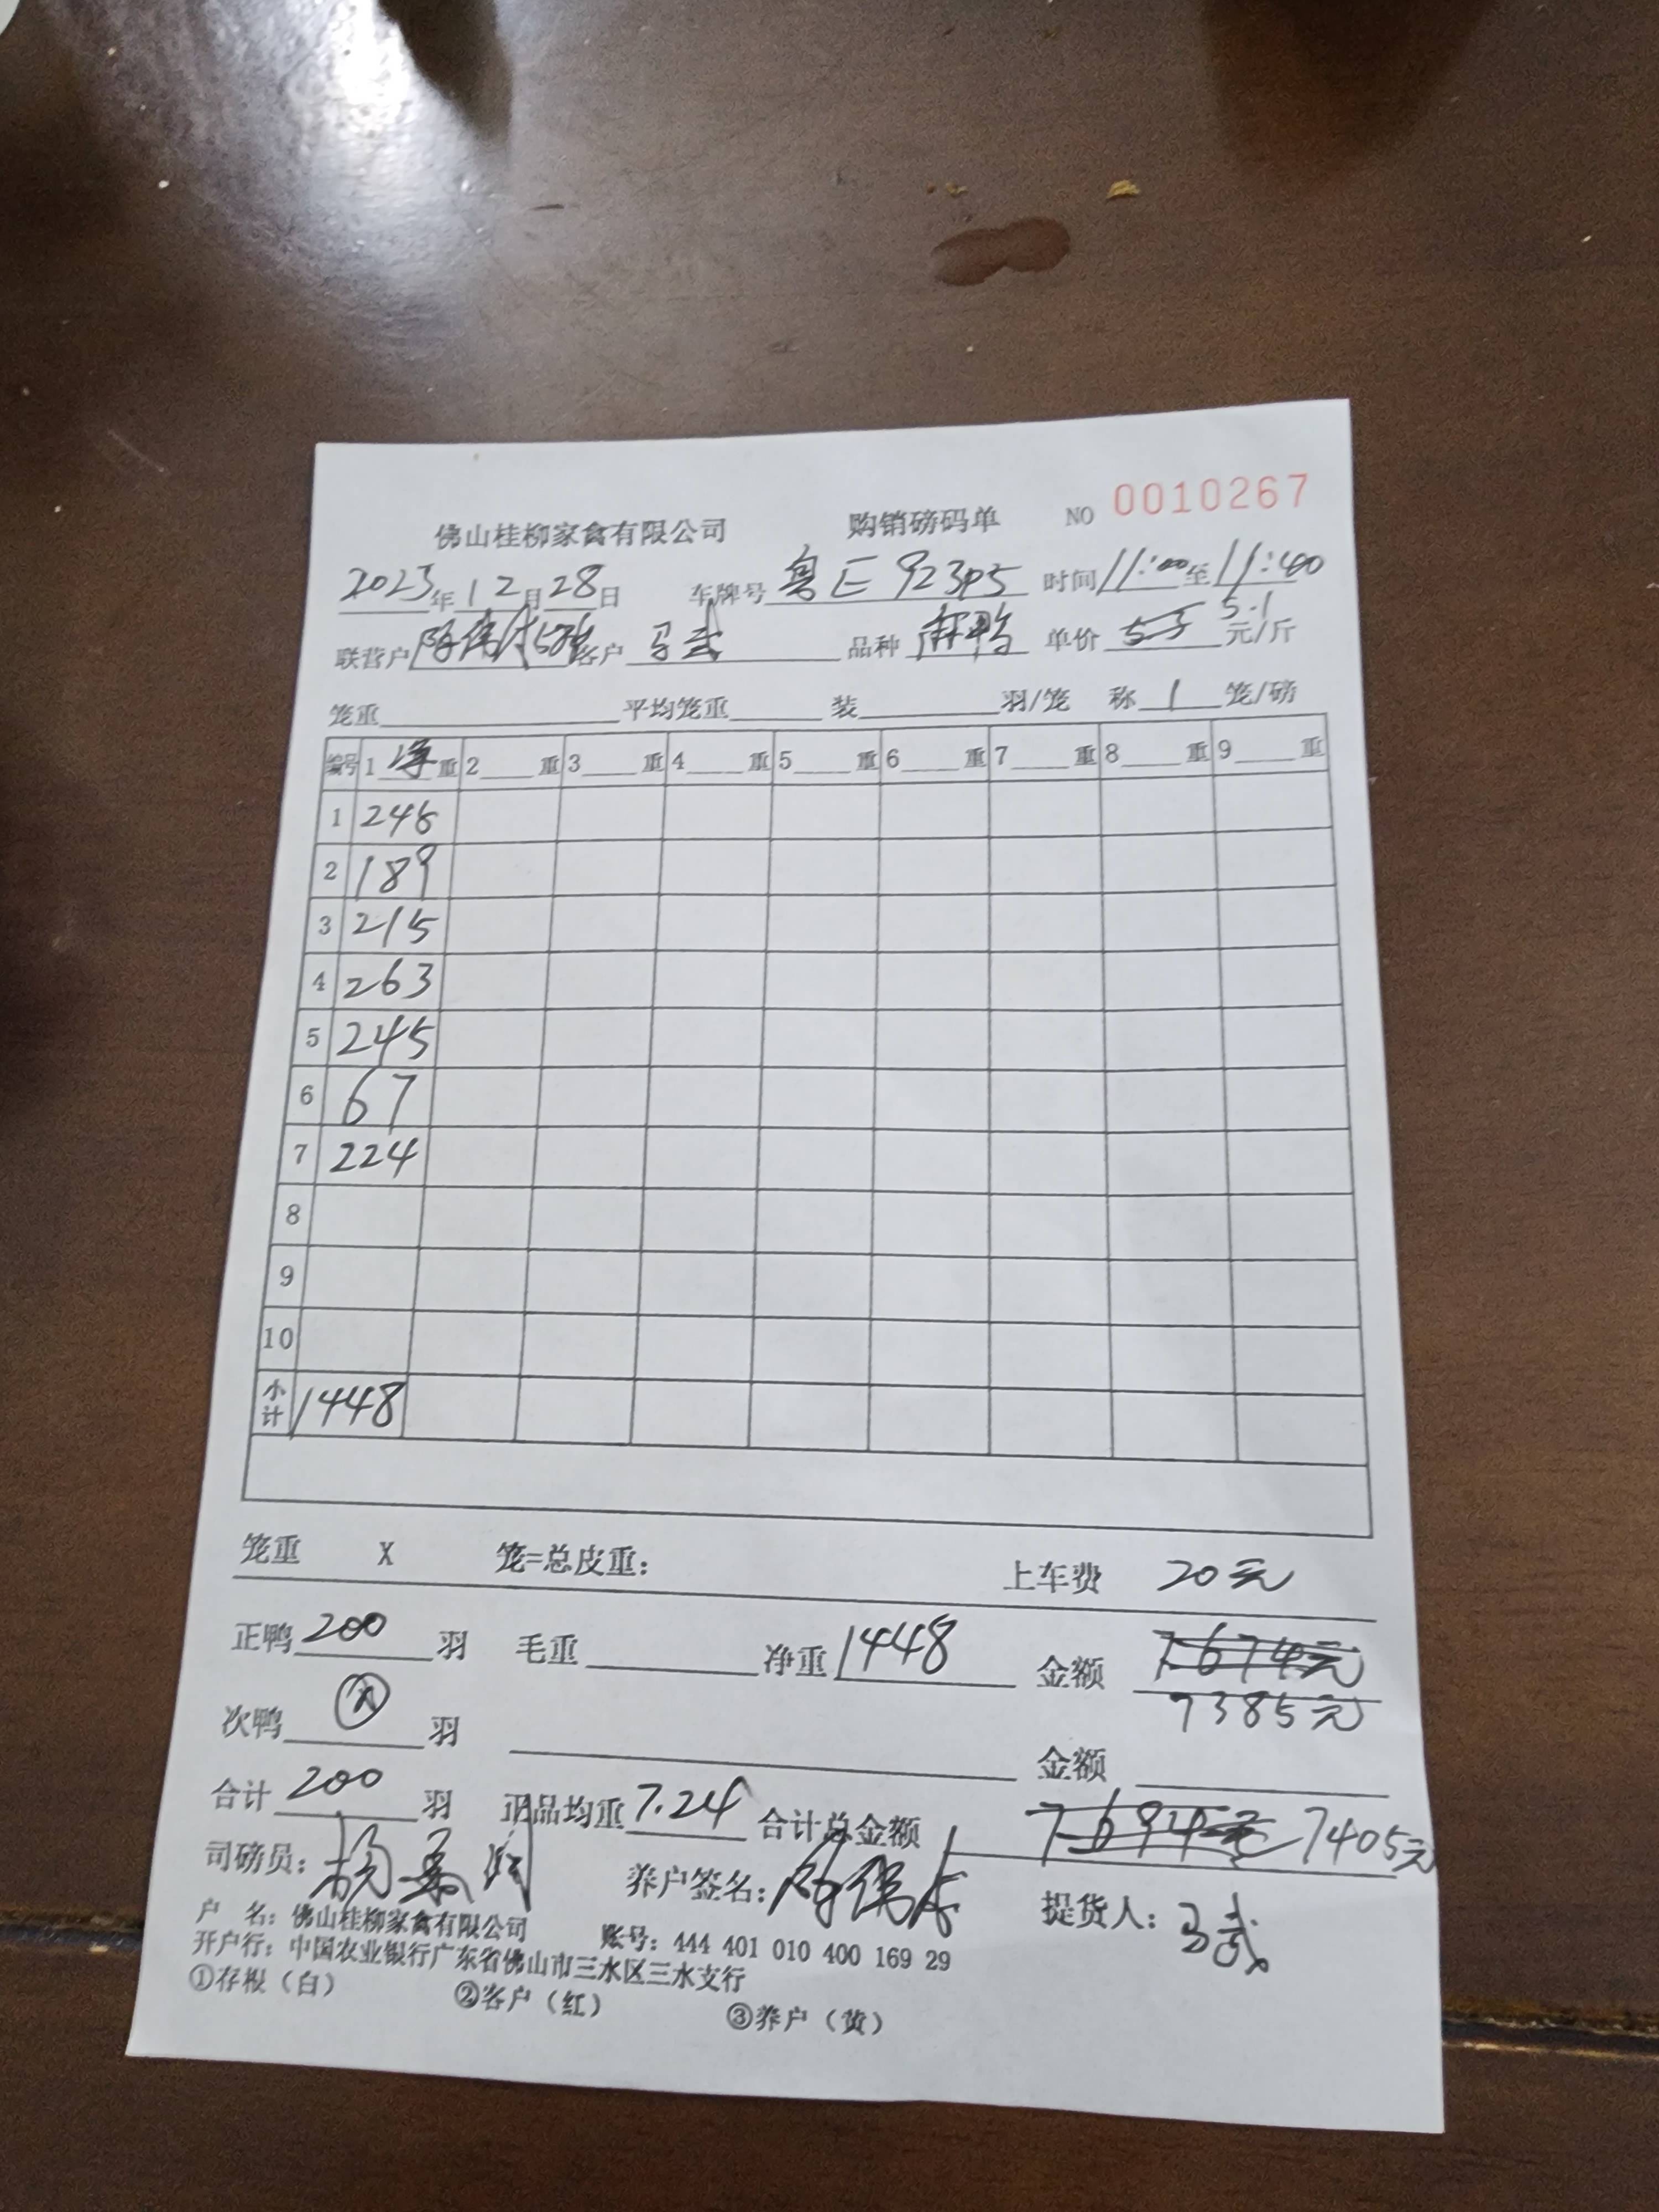 佛山桂柳家禽有限公司 购销磅码单 NO 0010267
2023年12月28日 车牌号 粤E 923P5 时间 11:00至11:40
联营户 客户 马武 品种 麻鸭 单价 5.1 元/斤
笼重 平均笼重 装 羽/笼 称 1 笼/磅
编号 1 净 重 2 重 3 重 4 重 5 重 6 重 7 重 8 重 9 重
1 245
2 189
3 215
4 263
5 245
6 67
7 224
8
9
10
小计 1448
笼重 X 笼=总皮重: 上车费 20元
正鸭 200 羽 毛重 净重 1448 金额 7674元
7385元
次鸭 羽 金额
合计 200 羽 正品均重 7.24 合计总金额 7694元 7405元
司磅员: 杨 养户签名: 陈伟 提货人: 马武
户 名: 佛山桂柳家禽有限公司 账号: 444 401 010 400 169 29
开户行: 中国农业银行广东省佛山市三水区三水支行
①存根(白) ②客户(红) ③养户(黄)